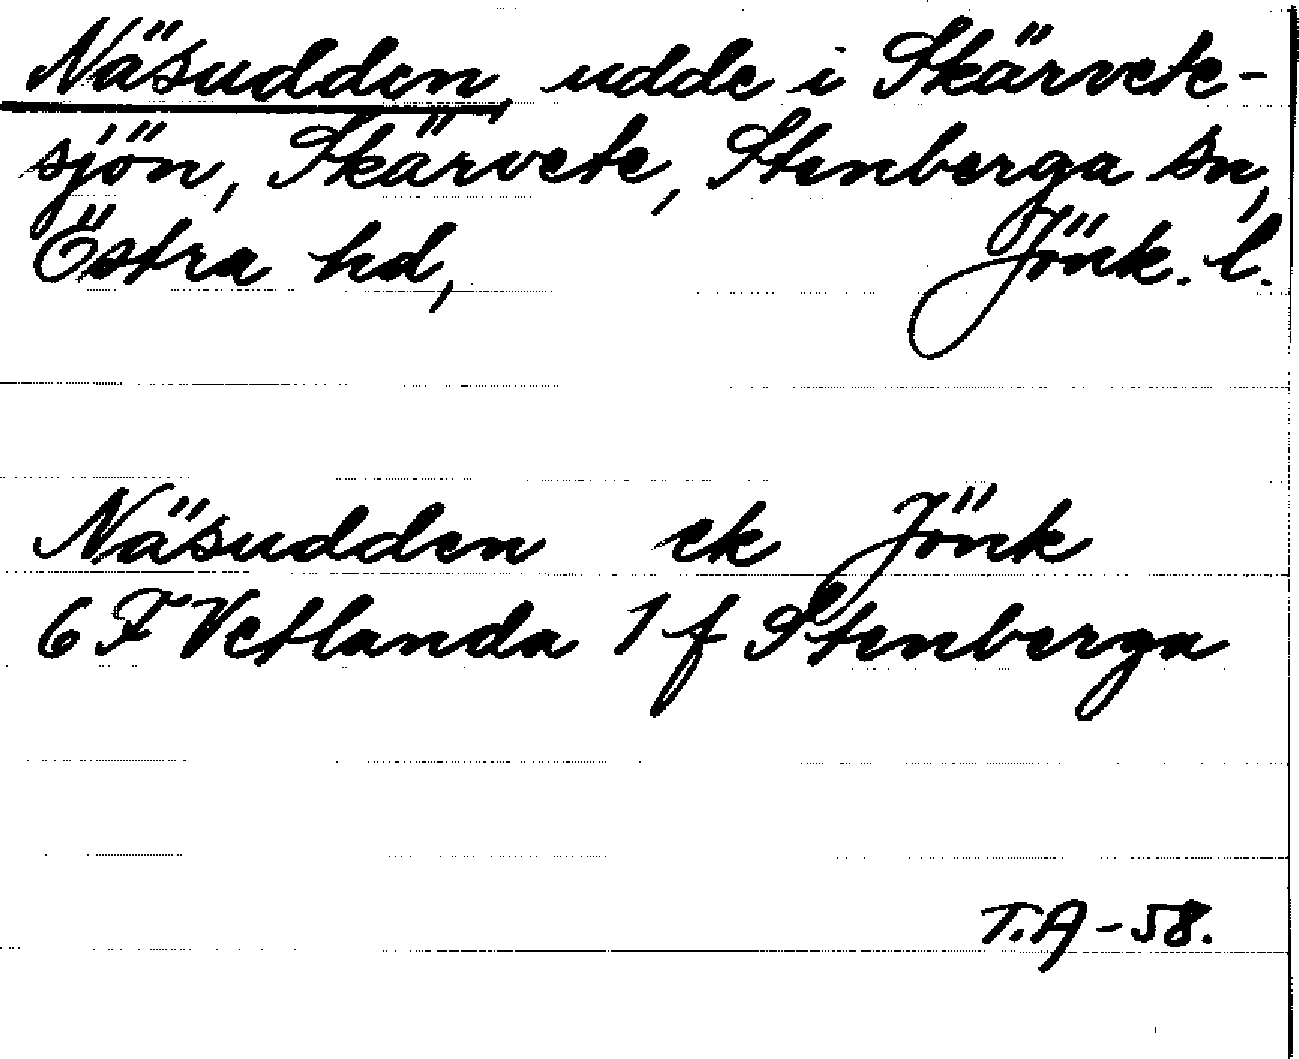 Näsudden, udde i Skärvete-
sjön, Skärvete, Stenberga sn,
Östra hd, Jönk. l.
Näsudden ek Jönk
6 F Vetlanda 1 f Stenberga
T.A -58.